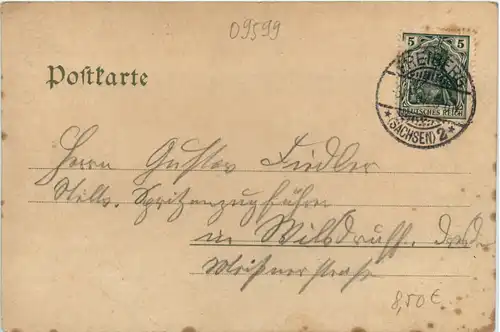 09599
5 5
FREIBERG
DEUTSCHES REICH
*(SACHSEN) 2*
Postkarte
Herrn Gustav Fiedler
Stellv. Spritzenzugführer
in Wilsdruff.
Meißnerstraße
8,50 €